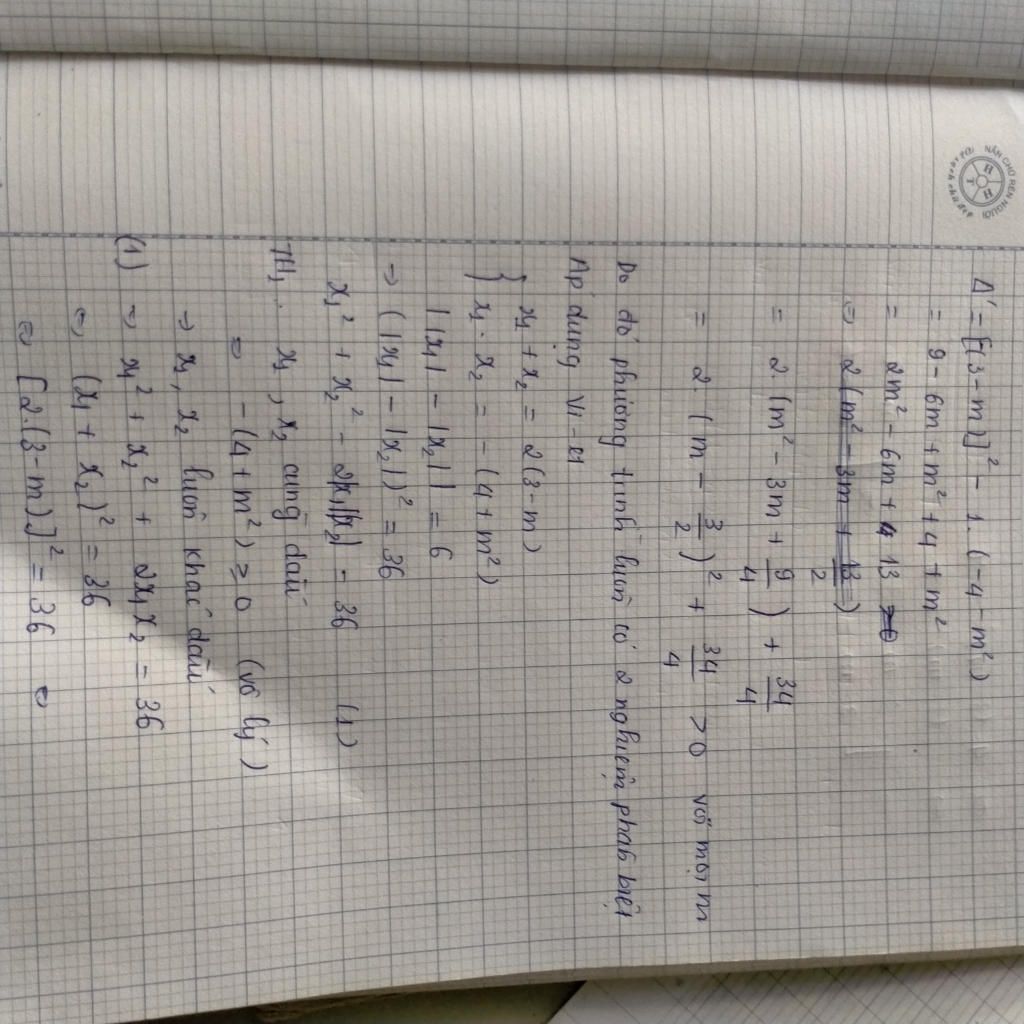 NẮN CHỮ RÈN NGƯỜI
H H T
Δ' = [-(3-m)]² - 1.(-4-m²)
= 9 - 6m + m² + 4 + m²
= 2m² - 6m + 13
⇒ 2(m² - 3m + 13/2)
= 2(m² - 3m + 9/4) + 34/4
= 2.(m - 3/2)² + 34/4 > 0 với mọi m
Do đó phương trình luôn có 2 nghiệm phân biệt
Áp dụng Vi-ét
{ x₁ + x₂ = 2(3-m)
x₁ . x₂ = -(4+m²)
||x₁| - |x₂|| = 6
⇒ (|x₁| - |x₂|)² = 36
x₁² + x₂² - 2|x₁||x₂| = 36 (1)
TH₁. x₁, x₂ cùng dấu
⇔ -(4+m²) ≥ 0 (vô lý)
→ x₁, x₂ luôn khác dấu
(1) ⇒ x₁² + x₂² + 2x₁x₂ = 36
⇔ (x₁ + x₂)² = 36
⇔ [2.(3-m)]² = 36 ⇔